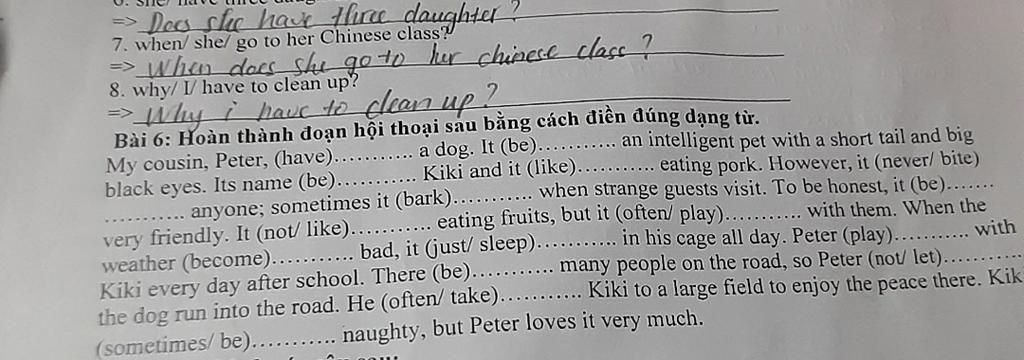 6. she/ have three daughter?
=> Does she have three daughter?
7. when/ she/ go to her Chinese class?
=> When does she go to her chinese class?
8. why/ I/ have to clean up?
=> Why i have to clean up?
Bài 6: Hoàn thành đoạn hội thoại sau bằng cách điền đúng dạng từ.
My cousin, Peter, (have)............ a dog. It (be)............ an intelligent pet with a short tail and big
black eyes. Its name (be)............ Kiki and it (like)............ eating pork. However, it (never/ bite)
............ anyone; sometimes it (bark)............ when strange guests visit. To be honest, it (be).......
very friendly. It (not/ like)............ eating fruits, but it (often/ play)............ with them. When the
weather (become)............ bad, it (just/ sleep)............ in his cage all day. Peter (play)............ with
Kiki every day after school. There (be)............ many people on the road, so Peter (not/ let)............
the dog run into the road. He (often/ take)............ Kiki to a large field to enjoy the peace there. Kik
(sometimes/ be)............ naughty, but Peter loves it very much.